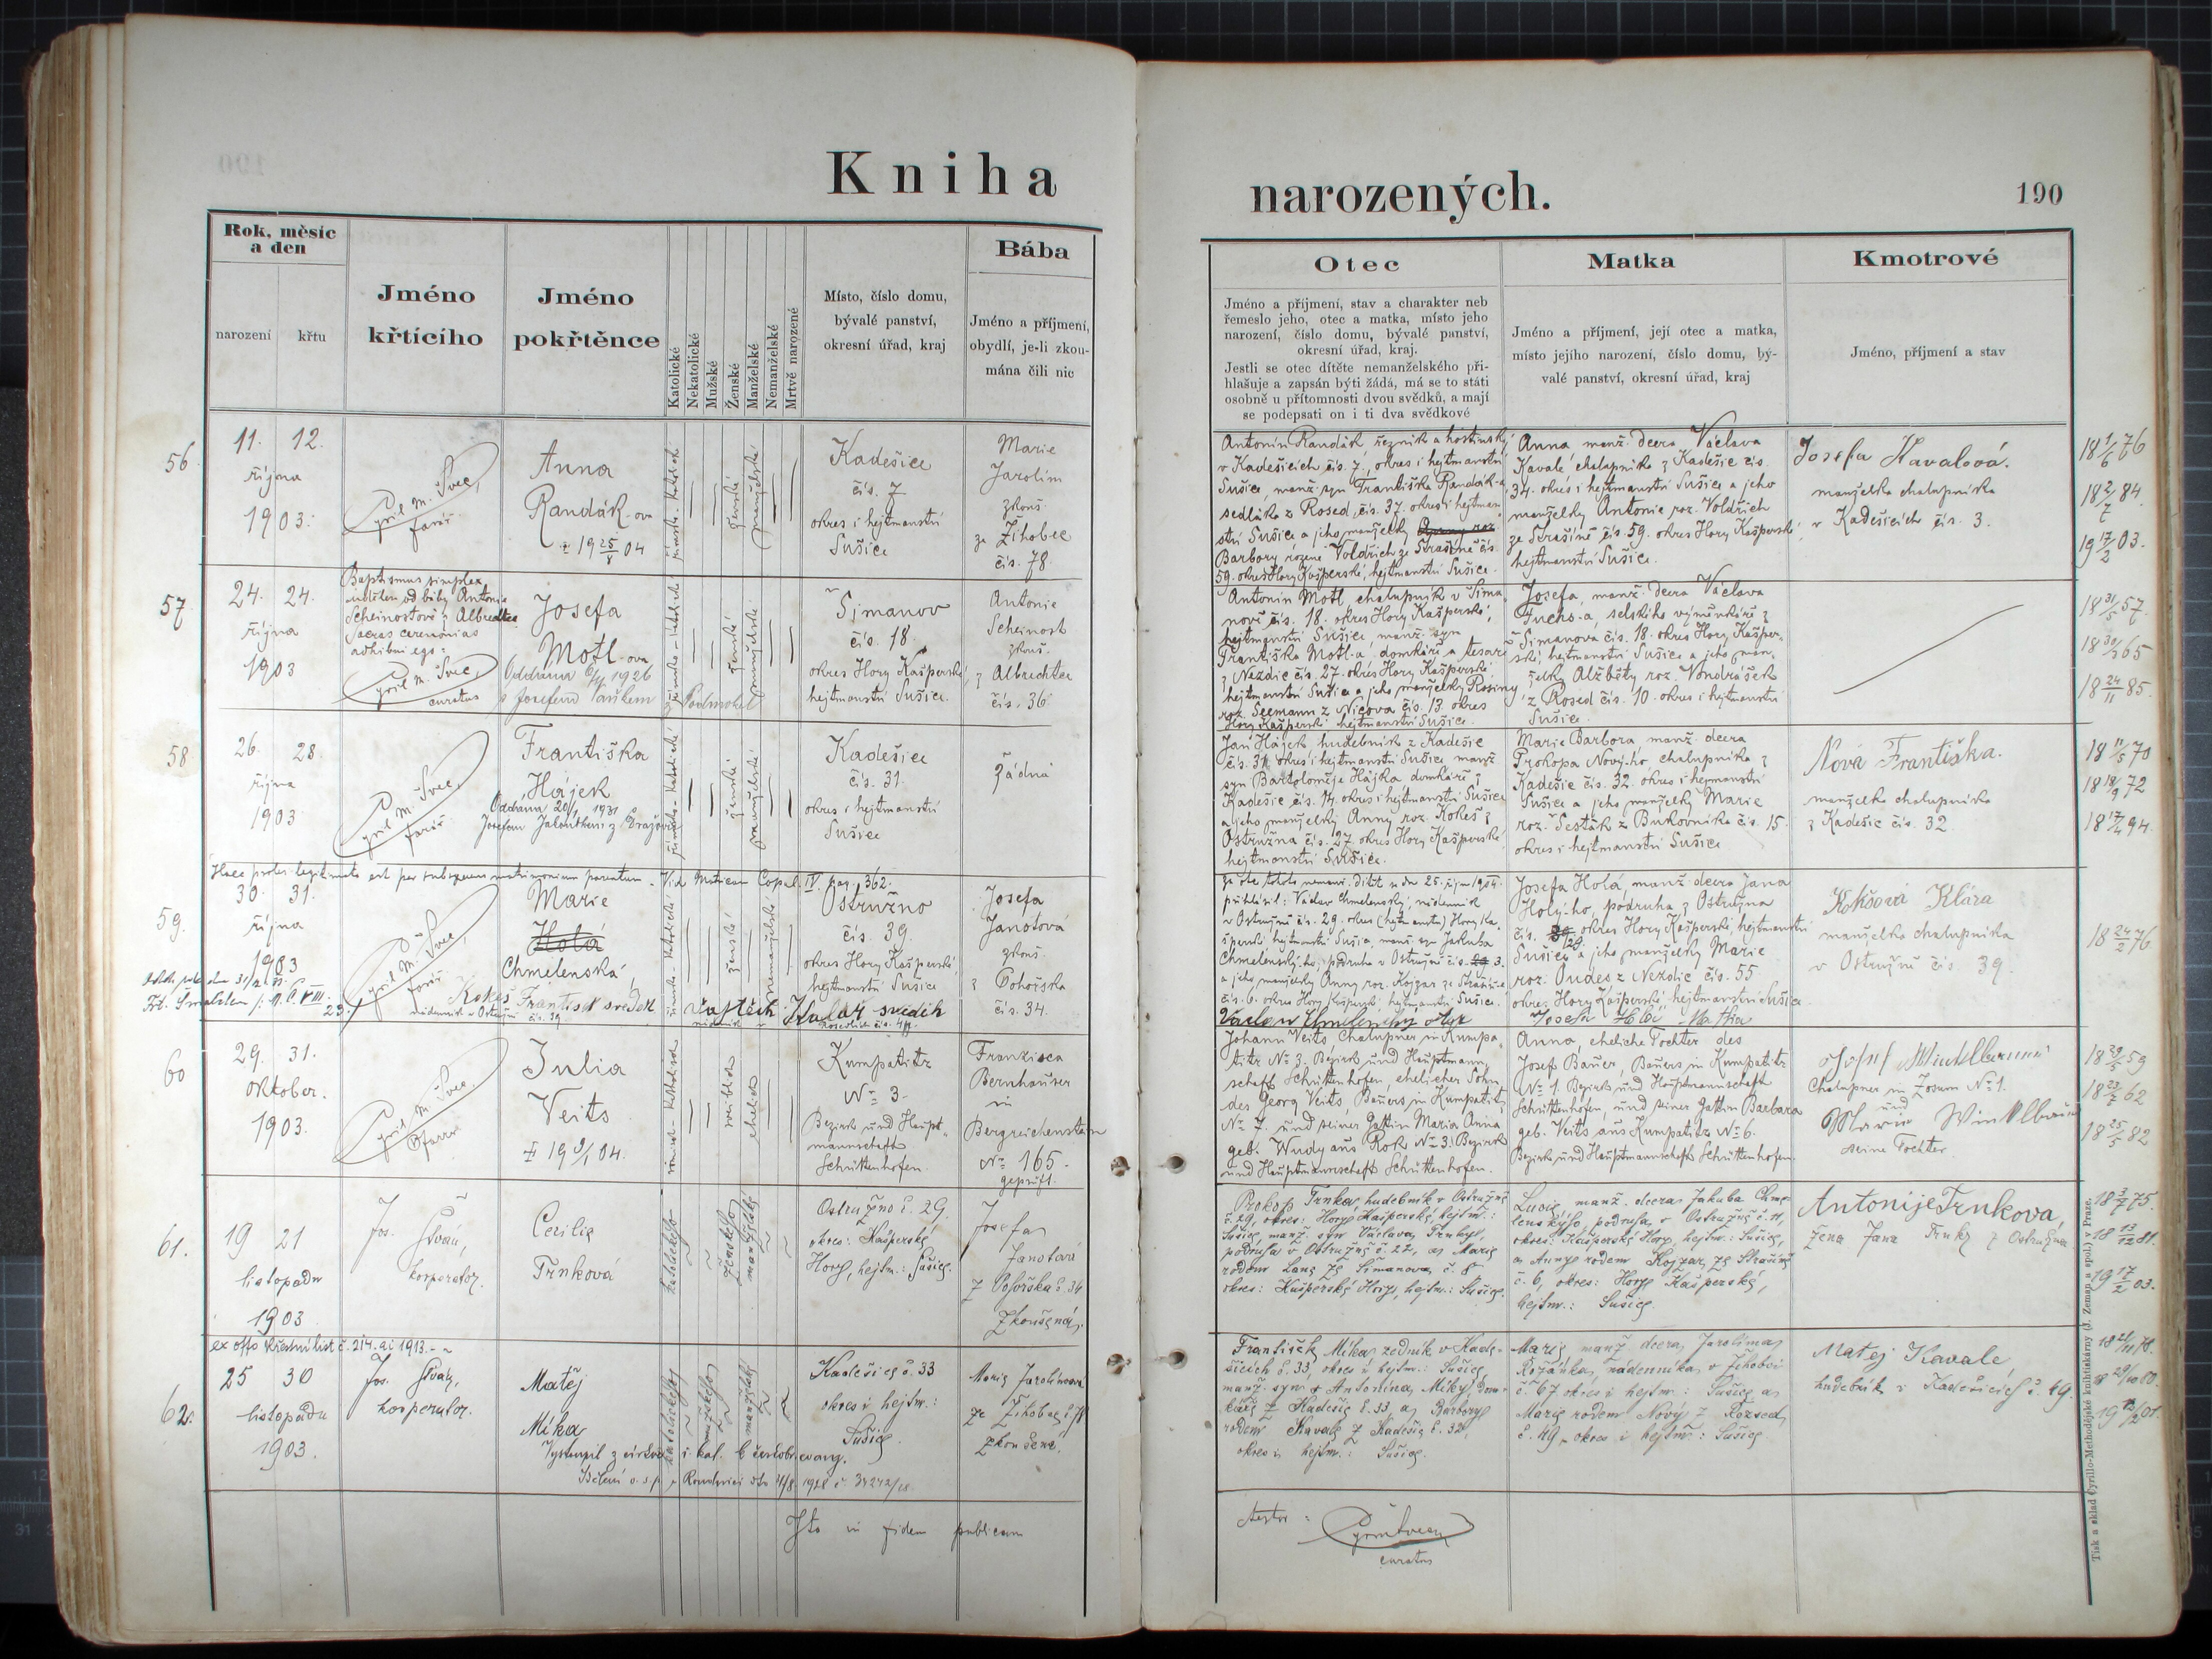 Kniha
narozených.
190
Rok, měsíc
a den
narození
křtu
Jméno
křtícího
Jméno
pokřtěnce
Katolické
Nekatolické
Mužské
Ženské
Manželské
Nemanželské
Mrtvě narozené
Místo, číslo domu,
bývalé panství,
okresní úřad, kraj
Bába
Jméno a příjmení,
obydlí, je-li zkou-
mána čili nic
Otec
Jméno a příjmení, stav a charakter neb
řemeslo jeho, otec a matka, místo jeho
narození, číslo domu, bývalé panství,
okresní úřad, kraj.
Jestli se otec dítěte nemanželského při-
hlašuje a zapsán býti žádá, má se to státi
osobně u přítomnosti dvou svědků, a mají
se podepsati on i ti dva svědkové
Matka
Jméno a příjmení, její otec a matka,
místo jejího narození, číslo domu, bý-
valé panství, okresní úřad, kraj
Kmotrové
Jméno, příjmení a stav
56
11. 12.
října
1903.
Cyril M. Švec,
farář.
Anna
Randák-ova
ženské
manželské
Kadešice
čís. 7
okres i hejtmanství
Sušice
Marie
Jarolím
zkouš.
ze Žihobec
čís. 78.
Antonín Randák, řezník a hostinský
v Kadešicích čís. 7, okres i hejtmanství
Sušice, manž. syn Františka Randák-a,
sedláka z Rosed, čís. 37. okres i hejtman-
ství Sušice a jeho manželky
Barbory rozené Voldřich ze Strašíně čís.
59. okres Hory Kašperské, hejtmanství Sušice.
Anna manž. dcera Václava
Kavale chalupníka z Kadešic čís.
34. okres i hejtmanství Sušice a jeho
manželky Antonie roz. Voldřich
ze Strašíně čís. 59. okres Hory Kašperské
hejtmanství Sušice.
Josefa Kavalová.
manželka chalupníka
v Kadešicích čís. 3.
57
24. 24.
října
1903
Baptismus simplex
udělen od báby Antonie
Scheinostové z Albrechtce
Sacras ceremonias
adhibui ego:
Cyril M. Švec,
curatus
Josefa
Motl-ova
s Josefem Vaškem
ženské
manželské
Šimanov
čís. 18.
okres Hory Kašperské,
hejtmanství Sušice.
Antonie
Scheinost
zkouš.
z Albrechtec
čís. 36.
Antonín Motl chalupník v Šima-
nově čís. 18. okres Hory Kašperské,
hejtmanství Sušice manž. syn
Františka Motl-a domkáře a tesaře
z Nezdic čís. 27. okres Hory Kašperské
hejtmanství Sušice a jeho manželky Rosiny
roz. Seemann z Nicova čís. 13. okres
Hory Kašperské hejtmanství Sušice.
Josefa, manž. dcera Václava
Fuchs-a, selského výměnkáře z
Šimanova čís. 18. okres Hory Kašper-
ské, hejtmanství Sušice a jeho man-
želky Alžběty roz. Vondrášek
z Rosed čís. 10. okres i hejtmanství
Sušice.
58
26. 28.
října
1903
Cyril M. Švec,
farář.
Františka
Hájek
ženské
manželské
Kadešice
čís. 31.
okres i hejtmanství
Sušice
žádná
Jan Hájek hudebník z Kadešic
čís. 31. okres i hejtmanství Sušice manž.
syn Bartoloměje Hájka domkáře z
Kadešic čís. 14. okres i hejtmanství Sušice
a jeho manželky Anny roz. Kokeš z
Ostružna čís. 27. okres Hory Kašperské
hejtmanství Sušice.
Marie Barbora manž. dcera
Prokopa Nový-ho, chalupníka z
Kadešic čís. 32. okres i hejtmanství
Sušice a jeho manželky Marie
roz. Šesták z Bukovníka čís. 15.
okres i hejtmanství Sušice
Nová Františka.
manželka chalupníka
z Kadešic čís. 32.
Haec proles legitimata est per subsequens matrimonium parentum. Vid. Matricam Copul. IV. pag. 362.
59.
30. 31.
října
1903
Cyril M. Švec,
farář.
Marie
Holá
Chmelenská
Kokeš František svědek
ženské
nemanželské
Vojtěch Kolář svědek
Ostružno
čís. 39.
okres Hory Kašperské,
hejtmanství Sušice
Josefa
Janotová
zkouš.
z Pohorska
čís. 34.
přihlásil: Václav Chmelenský, nádenník
v Ostružně čís. 29.
Chmelenský-ho, podruha v Ostružně čís. 3.
a jeho manželky Anny roz. Kojzar ze Strašíně
čís. 6. okres Hory Kašperské hejtmanství Sušice.
Václav Chmelenský otec
Josefa Holá, manž. dcera Jana
Holý-ho, podruha z Ostružna
čís. okres Hory Kašperské, hejtmanství
Sušice a jeho manželky Marie
roz. Oudes z Nezdic čís. 55
okres Hory Kašperské, hejtmanství Sušice
Josefa Holá Matka
Kokšová Klára
manželka chalupníka
v Ostružně čís. 39.
60
29. 31.
Oktober.
1903.
Cyril M. Švec
Pfarrer
Julia
Veits
weiblich
ehelich
Kumpatitz
No 3.
Bezirk und Haupt-
mannschaft
Schüttenhofen.
Franzisca
Bernhauser
in
Bergreichenstein
No 165.
geprüft.
Johann Veits Chalupner in Kumpa-
titz No 3. Bezirk und Hauptmann-
schaft Schüttenhofen, ehelicher Sohn
des Georg Veits, Bauers in Kumpatitz
No 7. und seiner Gattin Maria Anna
geb. Wudy aus Rok No 3. Bezirk
und Hauptmannschaft Schüttenhofen.
Anna, eheliche Tochter des
Josef Bauer, Bauers in Kumpatitz
No 1. Bezirk und Hauptmannschaft
Schüttenhofen, und seiner Gattin Barbara
geb. Veits aus Kumpatitz No 6.
Bezirk und Hauptmannschaft Schüttenhofen.
Josef Winkelbauer
Chalupner in Zosum No 1.
und
Maria Winkelbauer
seine Tochter.
61.
19 21
listopadu
1903
Jos. Štván,
kooperator.
Cecilie
Trnková
katolického
ženského
manželský
Ostružno č. 29,
okres: Kašperské
Hory, hejtm.: Sušice.
Josefa
Janotová
z Pohorska č. 34
zkoušená.
Prokop Trnka, hudebník v Ostružně
č. 29, okres: Hory Kašperské, hejtm.:
Sušice, manž. syn Václava Trnky,
podruha v Ostružně č. 22, a Marie
rodem Lang ze Šimanova č. 8
okres: Kašperské Hory, hejtm.: Sušice.
Lucie, manž. dcera Jakuba Chme-
lenského, podruha v Ostružně č. 11,
okres: Kašperské Hory, hejtm.: Sušice,
a Anny rodem Kojzar, ze Strašína
č. 6, okres: Hory Kašperské,
hejtm.: Sušice.
Antonije Trnkova,
žena Jana Trnky z Ostružna
ex offo křestní list č. 214. ai 1913.
62.
25 30
listopadu
1903.
Jos. Štván,
kooperator.
Matěj
Míka
Vystoupil z církve ř. kat. k českobr. evang.
katolického
mužského
manželský
Kadešice č. 33
okres i hejtm.:
Sušice.
Marie Jarolímová
ze Žihobec č. 78
zkoušená.
František Míka, zedník v Kade-
šicích č. 33, okres i hejtm.: Sušice,
manž. syn Antonína Míky, dom-
káře z Kadešic č. 33 a Barbory
rodem Kavale z Kadešic č. 32,
okres i hejtm.: Sušice.
Marie manž. dcera Jarolíma
Rožánka, nádenníka v Žihobci
č. 67 okres i hejtm.: Sušice a
Marie rodem Nový z Rozsed
č. 49, okres i hejtm.: Sušice.
Matěj Kavale,
hudebník v Kadešicích č. 49.
Ita in fidem publicam
testor:
curatus
Tisk a sklad Cyrillo-Methodějské knihtiskárny (J. Zeman a spol.) v Praze.